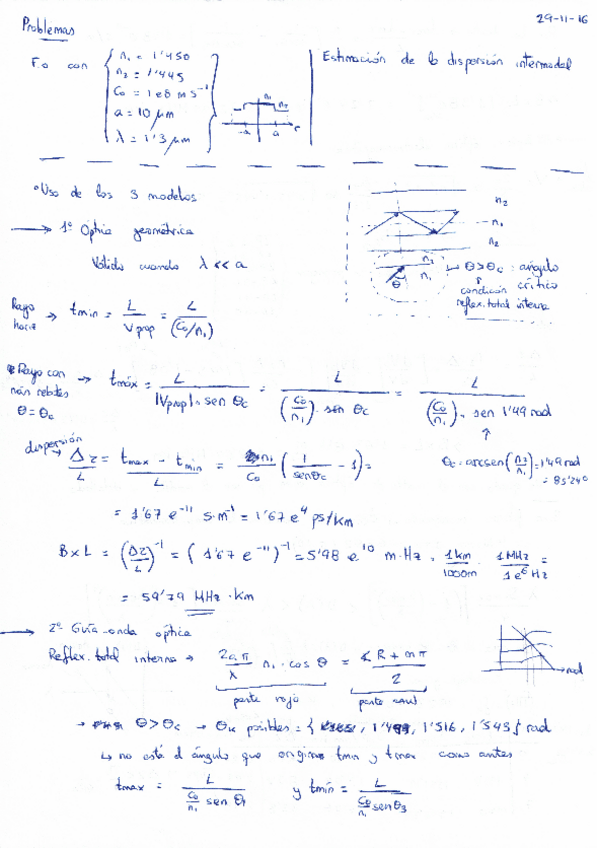 Problemas
29-11-16
F.o con { n₁ = 1'450
n₂ = 1'445
C₀ = 1e8 m s⁻¹
a = 10 μm
λ = 1'3 μm }
n₁
n₂
-a a r
Estimación de la dispersión intermodal
Uso de los 3 modelos
→ 1º Optica geométrica
Válido cuando λ << a
n₂
n₁
n₂
n₂
n₁
θ
→ θ > θc : ángulo crítico
condición
reflex. total interna
Rayo horiz → tmin = L / Vprop = L / (C₀/n₁)
Rayo con más rebotes → tmáx = L / |Vprop|. sen θc = L / (C₀/n₁). sen θc = L / (C₀/n₁). sen 1'49 rad
θ = θc
θc = arcsen(n₂/n₁) = 1'49 rad
= 85'24º
dispersión → Δτ/L = (tmax - tmin)/L = n₁/C₀ (1/senθc - 1) =
= 1'67 e⁻¹¹ s·m⁻¹ = 1'67 e⁴ ps/km
B x L = (Δτ/L)⁻¹ = (1'67 e⁻¹¹)⁻¹ = 5'98 e¹⁰ m·Hz . 1km/1000m . 1MHz/1e⁶Hz =
= 59'79 MHz·km
→ 2º Guía-onda optica
Reflex. total interna → 2aπ/λ n₁ · cos θ = (∠R + mπ)/2
parte rojo
parte azul
rad
→ θ > θc → θk posibles = { , 1'516, 1'543} rad
↳ no está el ángulo que origina tmin y tmax como antes
tmax = L / (C₀/n₁ sen θ₁) y tmín = L / (C₀/n₁ senθ₃)